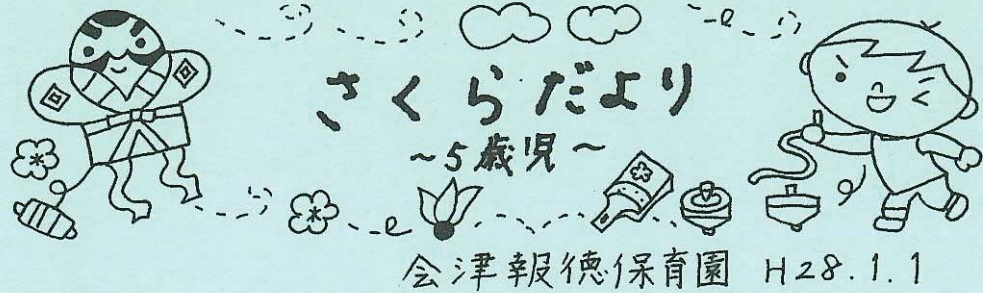 さくらだより
～5歳児～
会津報徳保育園 H28.1.1